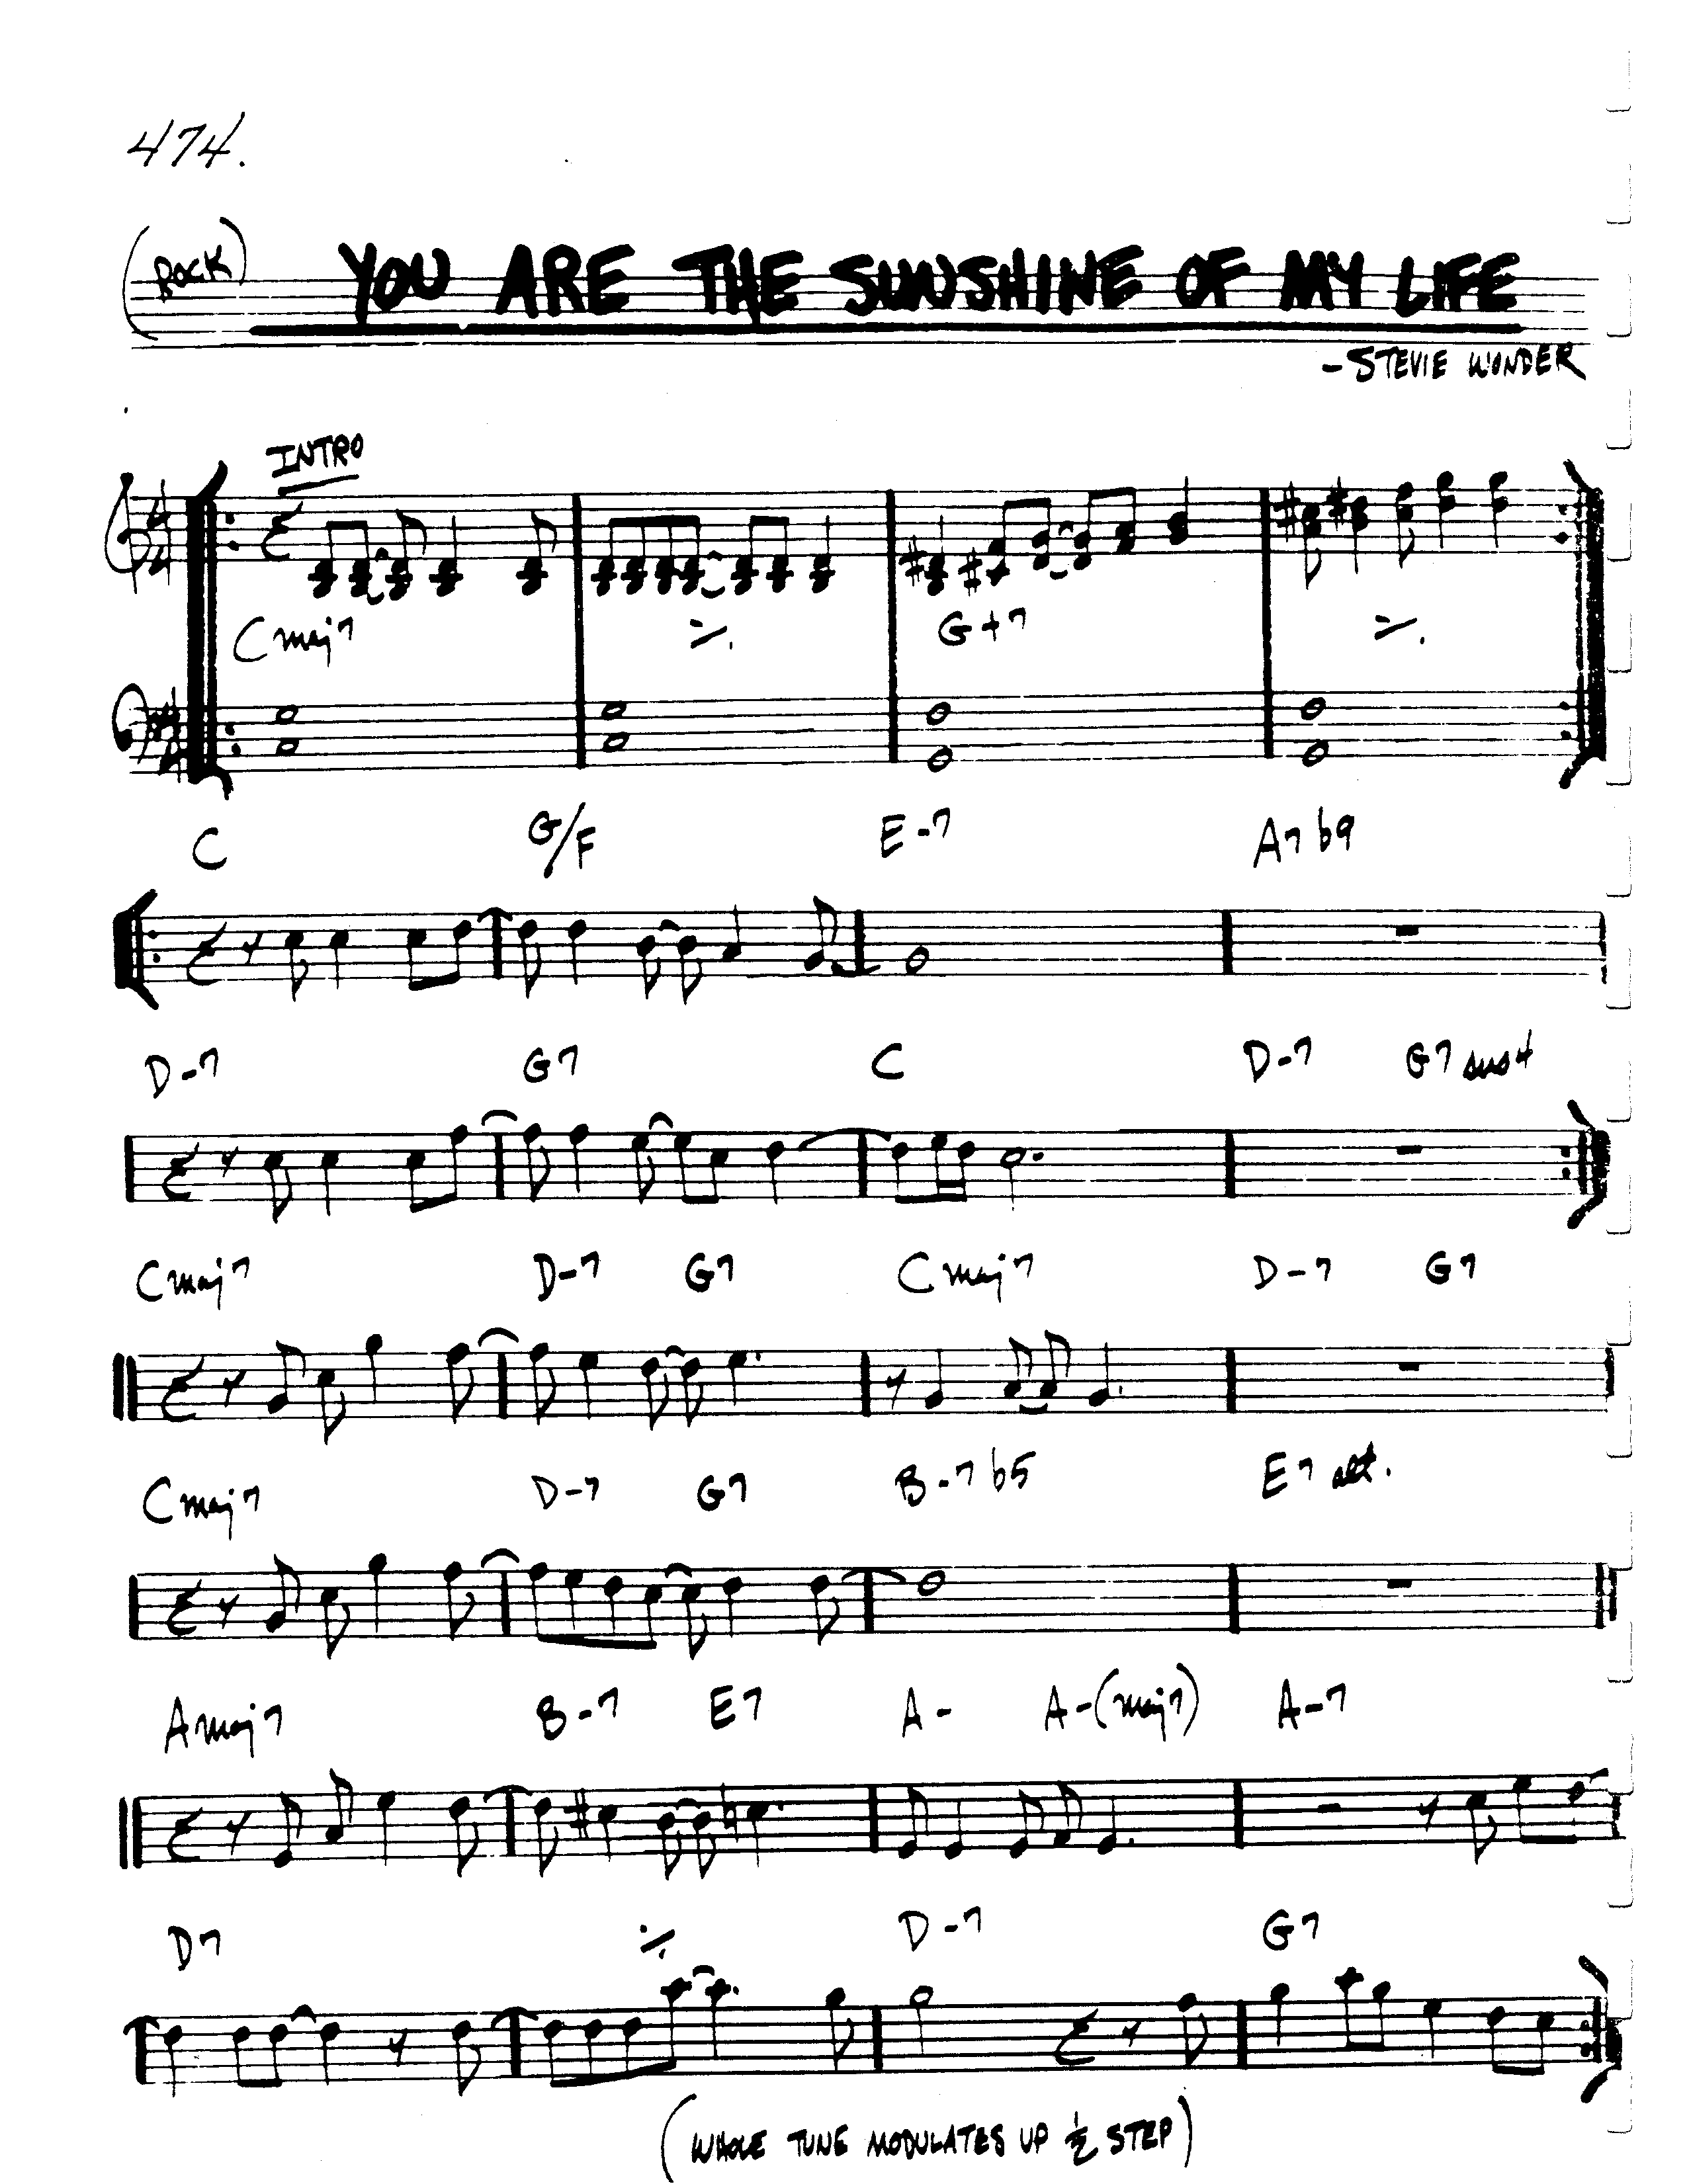 474.
(ROCK) YOU ARE THE SUNSHINE OF MY LIFE
-STEVIE WONDER
INTRO
4 4
Cmaj7 ٪ G+7 ٪
C G/F E-7 A7b9
D-7 G7 C D-7 G7sus4
Cmaj7 D-7 G7 Cmaj7 D-7 G7
Cmaj7 D-7 G7 B-7b5 E7alt.
Amaj7 B-7 E7 A- A-(maj7) A-7
D7 ٪ D-7 G7
(WHOLE TUNE MODULATES UP ½ STEP)